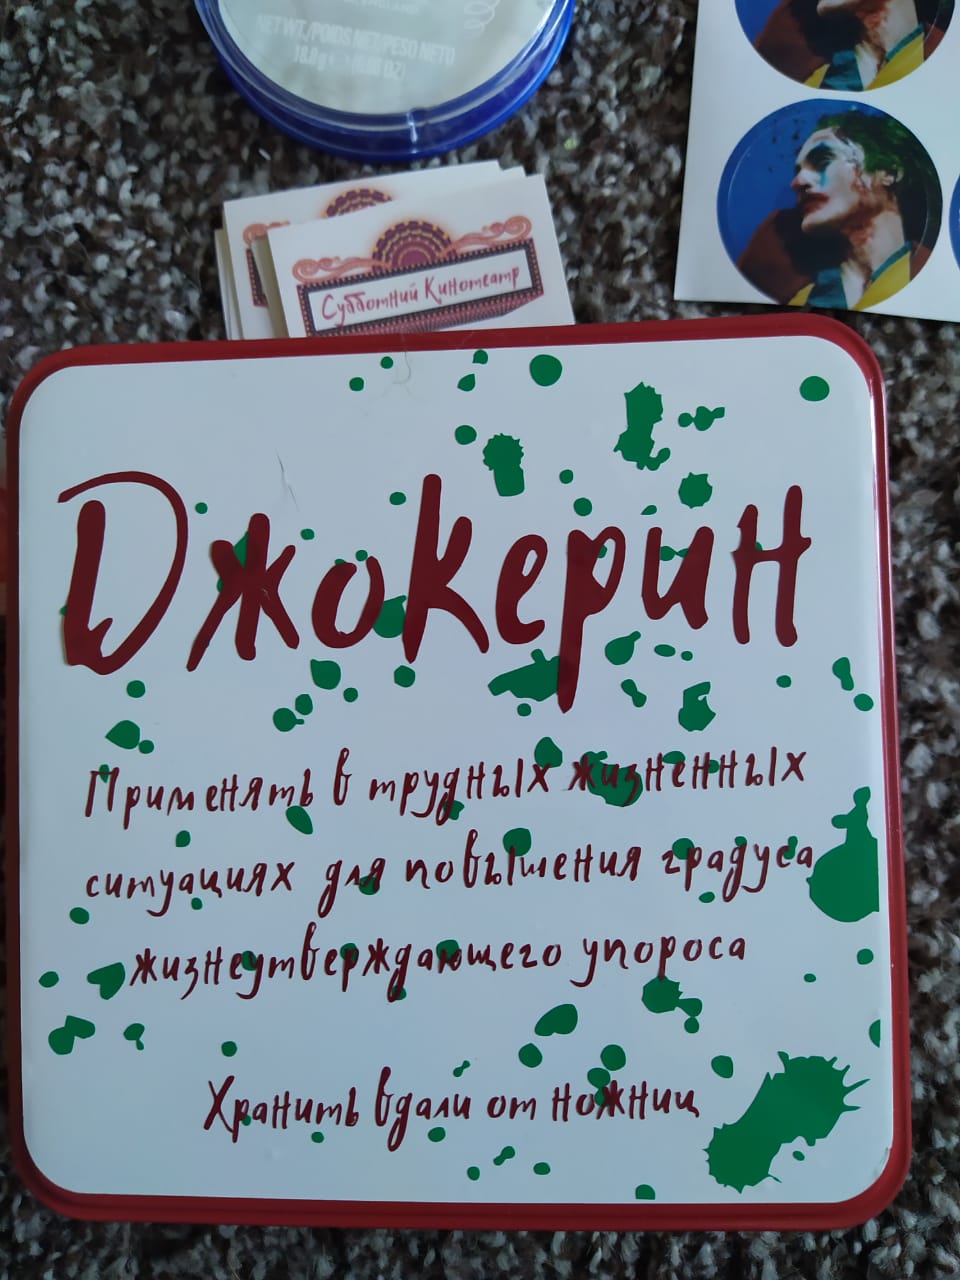 NET WT./POIDS NET/PESO NETO
Субботний Кинотеатр
Джокерин
Применять в трудных жизненных
ситуациях для повышения градуса
жизнеутверждающего упороса
Хранить вдали от ножниц